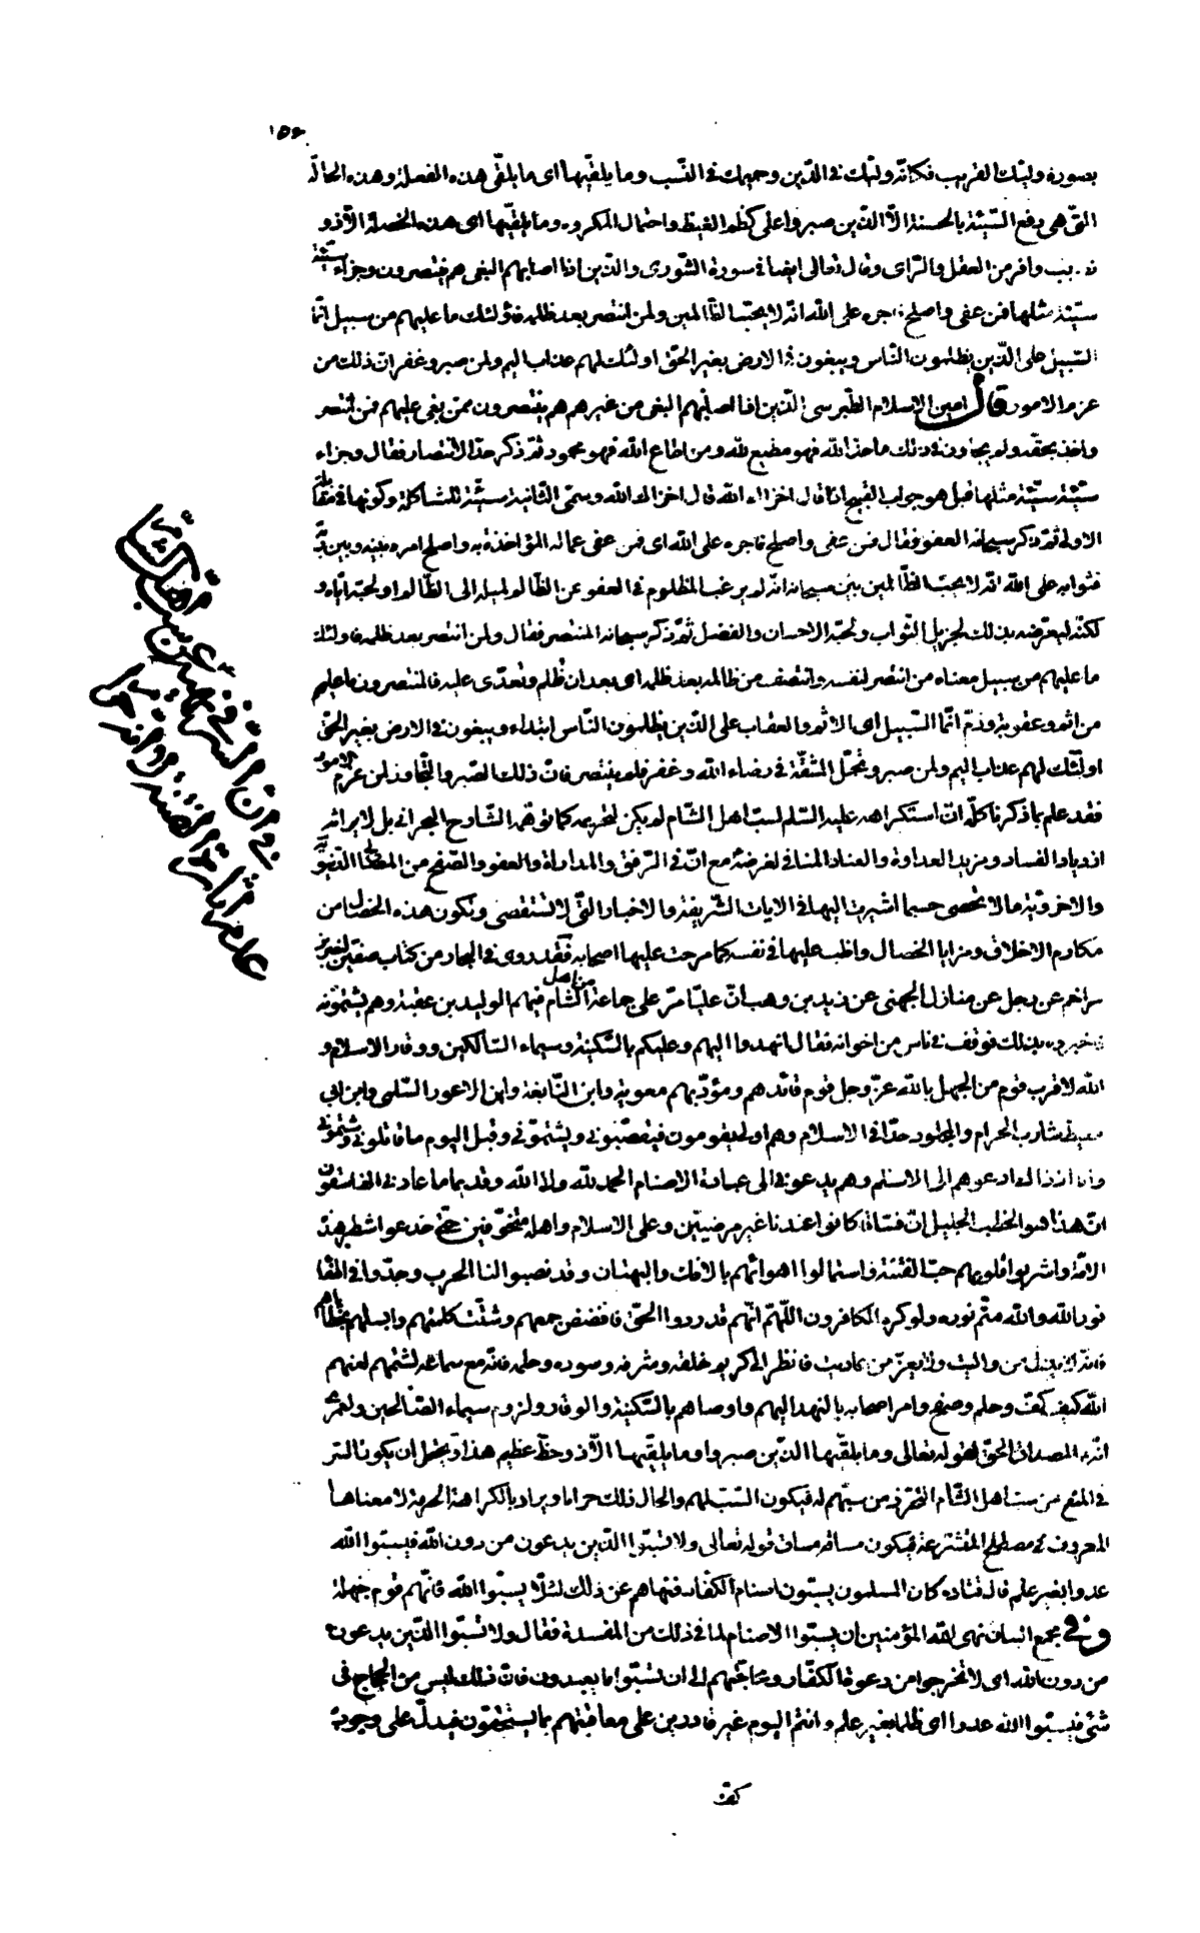 ١٥٦
بصورة وليّك القريب فكانّه وليّك في الدّين وحميمك في النّسب وما يلقّيها اى ما يلقّى هذه الفعلة وهذه الحالة
التّى هى دفع السّيّئة بالحسنة الاّ الّذين صبروا على كظم الغيظ واحتمال المكروه وما يلقّيها اى هذه الخصلة الاّ ذو
نصيب وافر من العقل والرّاى وقال تعالى ايضا في سورة الشّورى والّذين اذا اصابهم البغى هم ينتصرون وجزاء سيّئة
سيّئة مثلها فمن عفى واصلح فاجره على الله انّه لا يحبّ الظّالمين ولمن انتصر بعد ظلمه فاولئك ما عليهم من سبيل انّما
السّبيل على الّذين يظلمون النّاس ويبغون في الارض بغير الحقّ اولئك لهم عذاب اليم ولمن صبر وغفر انّ ذلك من
عزم الامور قال امين الاسلام الطّبرسى الّذين اذا اصابهم البغى من غيرهم هم ينتصرون ممّن بغى عليهم فمن انتصر
واخذ بحقّه ولم يجاوز في ذلك ما حدّ الله فهو مطيع لله ومن اطاع الله فهو محمود ثمّ ذكر حدّ الانتصار فقال وجزاء
سيّئة سيّئة مثلها قيل هو جواب القبيح اذا قال اخزاك الله قال اخزاك الله وسمّى الثّانية سيّئة للمشاكلة وكونها في مقابلة
الاولى ثمّ ذكر سبحانه العفو فقال فمن عفى واصلح فاجره على الله اى فمن عفى عمّا له المؤاخذة به واصلح امره بينه وبين ربّه
فثوابه على الله انّه لا يحبّ الظّالمين بيّن سبحانه انّه لم يرغب المظلوم في العفو عن الظّالم لميله الى الظّالم او لحبّه ايّاه و
لكنّه ليعرّضه بذلك لجزيل الثّواب ولحبّه الاحسان والفضل ثمّ ذكر سبحانه المنتصر فقال ولمن انتصر بعد ظلمه فاولئك
ما عليهم من سبيل معناه من انتصر لنفسه وانتصف من ظالمه بعد ظلمه اى بعد ان ظُلم وتُعدّى عليه فالمنتصرون ما عليهم
من اثم وعقوبة وذمّ انّما السّبيل اى الاثم والعقاب على الّذين يظلمون النّاس ابتداء ويبغون في الارض بغير الحقّ
اولئك لهم عذاب اليم ولمن صبر وتحمّل المشقّة في رضاء الله وغفر فلم ينتصر فانّ ذلك الصّبر والتّجاوز لمن عزم الامور
فقد علم بما ذكرنا كلّه انّ استكراهه عليه السّلم لسبّ اهل الشّام لم يكن لتحريمه كما توهّمه الشّارح البحرانى بل لايراثه
ازدياد الفساد ومزيد العداوة والعناد المنافى لغرضه مع انّ في الرّفق والمداراة والعفو والصّفح من المصالح الدّنيويّة
والاخرويّة ما لا يحصى حسبما اشيرت اليها في الايات الشّريفة والاخبار الّتى لا تستقصى وتكون هذه الخصال من
مكارم الاخلاق ومزايا الخصال واظب عليها في نفسه كما مرّت عليها اصحابه فقد روى في البحار من كتاب صفّين لنصر بن
مزاحم عن رجل عن منازل الجهنى عن زيد بن وهب انّ عليّا مرّ على جماعة من اهل الشّام فيهم الوليد بن عقبة وهم يشتمونه
فاخبروه بذلك فوقف في ناس من اخوانه فقال انهدوا اليهم وعليكم بالسّكينة وسيماء السّالكين ووقار الاسلام و
الله لاقرب قوم من الجهل بالله عزّ وجل قوم قائدهم ومؤدّبهم معوية وابن النّابغة وابن الاعور السّلمى وابن ابي
معيط شارب الحرام والمجلود حدّا في الاسلام وهم اولى يقومون فيقصبونى ويشتمونى وقبل اليوم ما قاتلونى وشتمونى
وانا اذ ذاك ادعوهم الى الاسلم وهم يدعونى الى عبادة الاصنام الحمد لله ولا اله الا الله وقديما ما عادنى الفاسقون
انّ هذا لهو الخطب الجليل انّ فسّاقا كانوا عندنا غير مرضيّين وعلى الاسلام واهله متخوّفين حتّى خدعوا شطر هذه
الامّة واشربوا قلوبهم حبّ الفتنة واستمالوا اهوائهم بالافك والبهتان وقد نصبوا لنا الحرب وجدّوا في اطفاء
نور الله والله متمّ نوره ولو كره الكافرون اللّهمّ انّهم قد ردوا الحقّ فافضض جمعهم وشتّت كلمتهم وابسلهم بخطاياهم
فانّه لا يذلّ من واليت ولا يعزّ من عاديت فانظر الى كريم خلقه وشرفه وسودده وحلمه فانّه مع سماعه لشتمهم لعنهم
الله كيف كفّ وحلم وصفح وامر اصحابه بالنهد اليهم واوصاهم بالسّكينة والوقار ولزوم سيماء الصّالحين ولعمرى
انّه المصداق الحقّ لقوله تعالى وما يلقّيها الّذين صبروا وما يلقّيها الاّ ذو حظّ عظيم هذا ويحتمل ان يكون السّر
في المنع من سبّ اهل الشّام التحرّز من سبّهم له فيكون السّبّ لهم والحال ذلك حراما ويراد بالكراهة الحرمة لا معناها
المعروف في مصطلح المتشرّعة فيكون مساقه مساق قوله تعالى ولا تسبّوا الّذين يدعون من دون الله فيسبّوا الله
عدوا بغير علم قال قتاده كان المسلمون يسبّون اصنام الكفّار فنهاهم عن ذلك لئلاّ يسبّوا الله فانّهم قوم جهلة
وفي مجمع البيان نهى الله المؤمنين ان يسبّوا الاصنام لما في ذلك من المفسدة فقال ولا تسبّوا الّذين يدعون
من دون الله اى لا تخرجوا من دعوة الكفّار ومحاجّتهم الى ان تسبّوا ما يعبدون فانّ ذلك ليس من الحجاج في
شئ فيسبّوا الله عدوا اى ظلما بغير علم وانتم اليوم غير قادرين على معاقبتهم بما يستحقّون فيدلّ على وجوب
كفّ
في انّ السّر في نهيه عن سبّ اهل الشّام